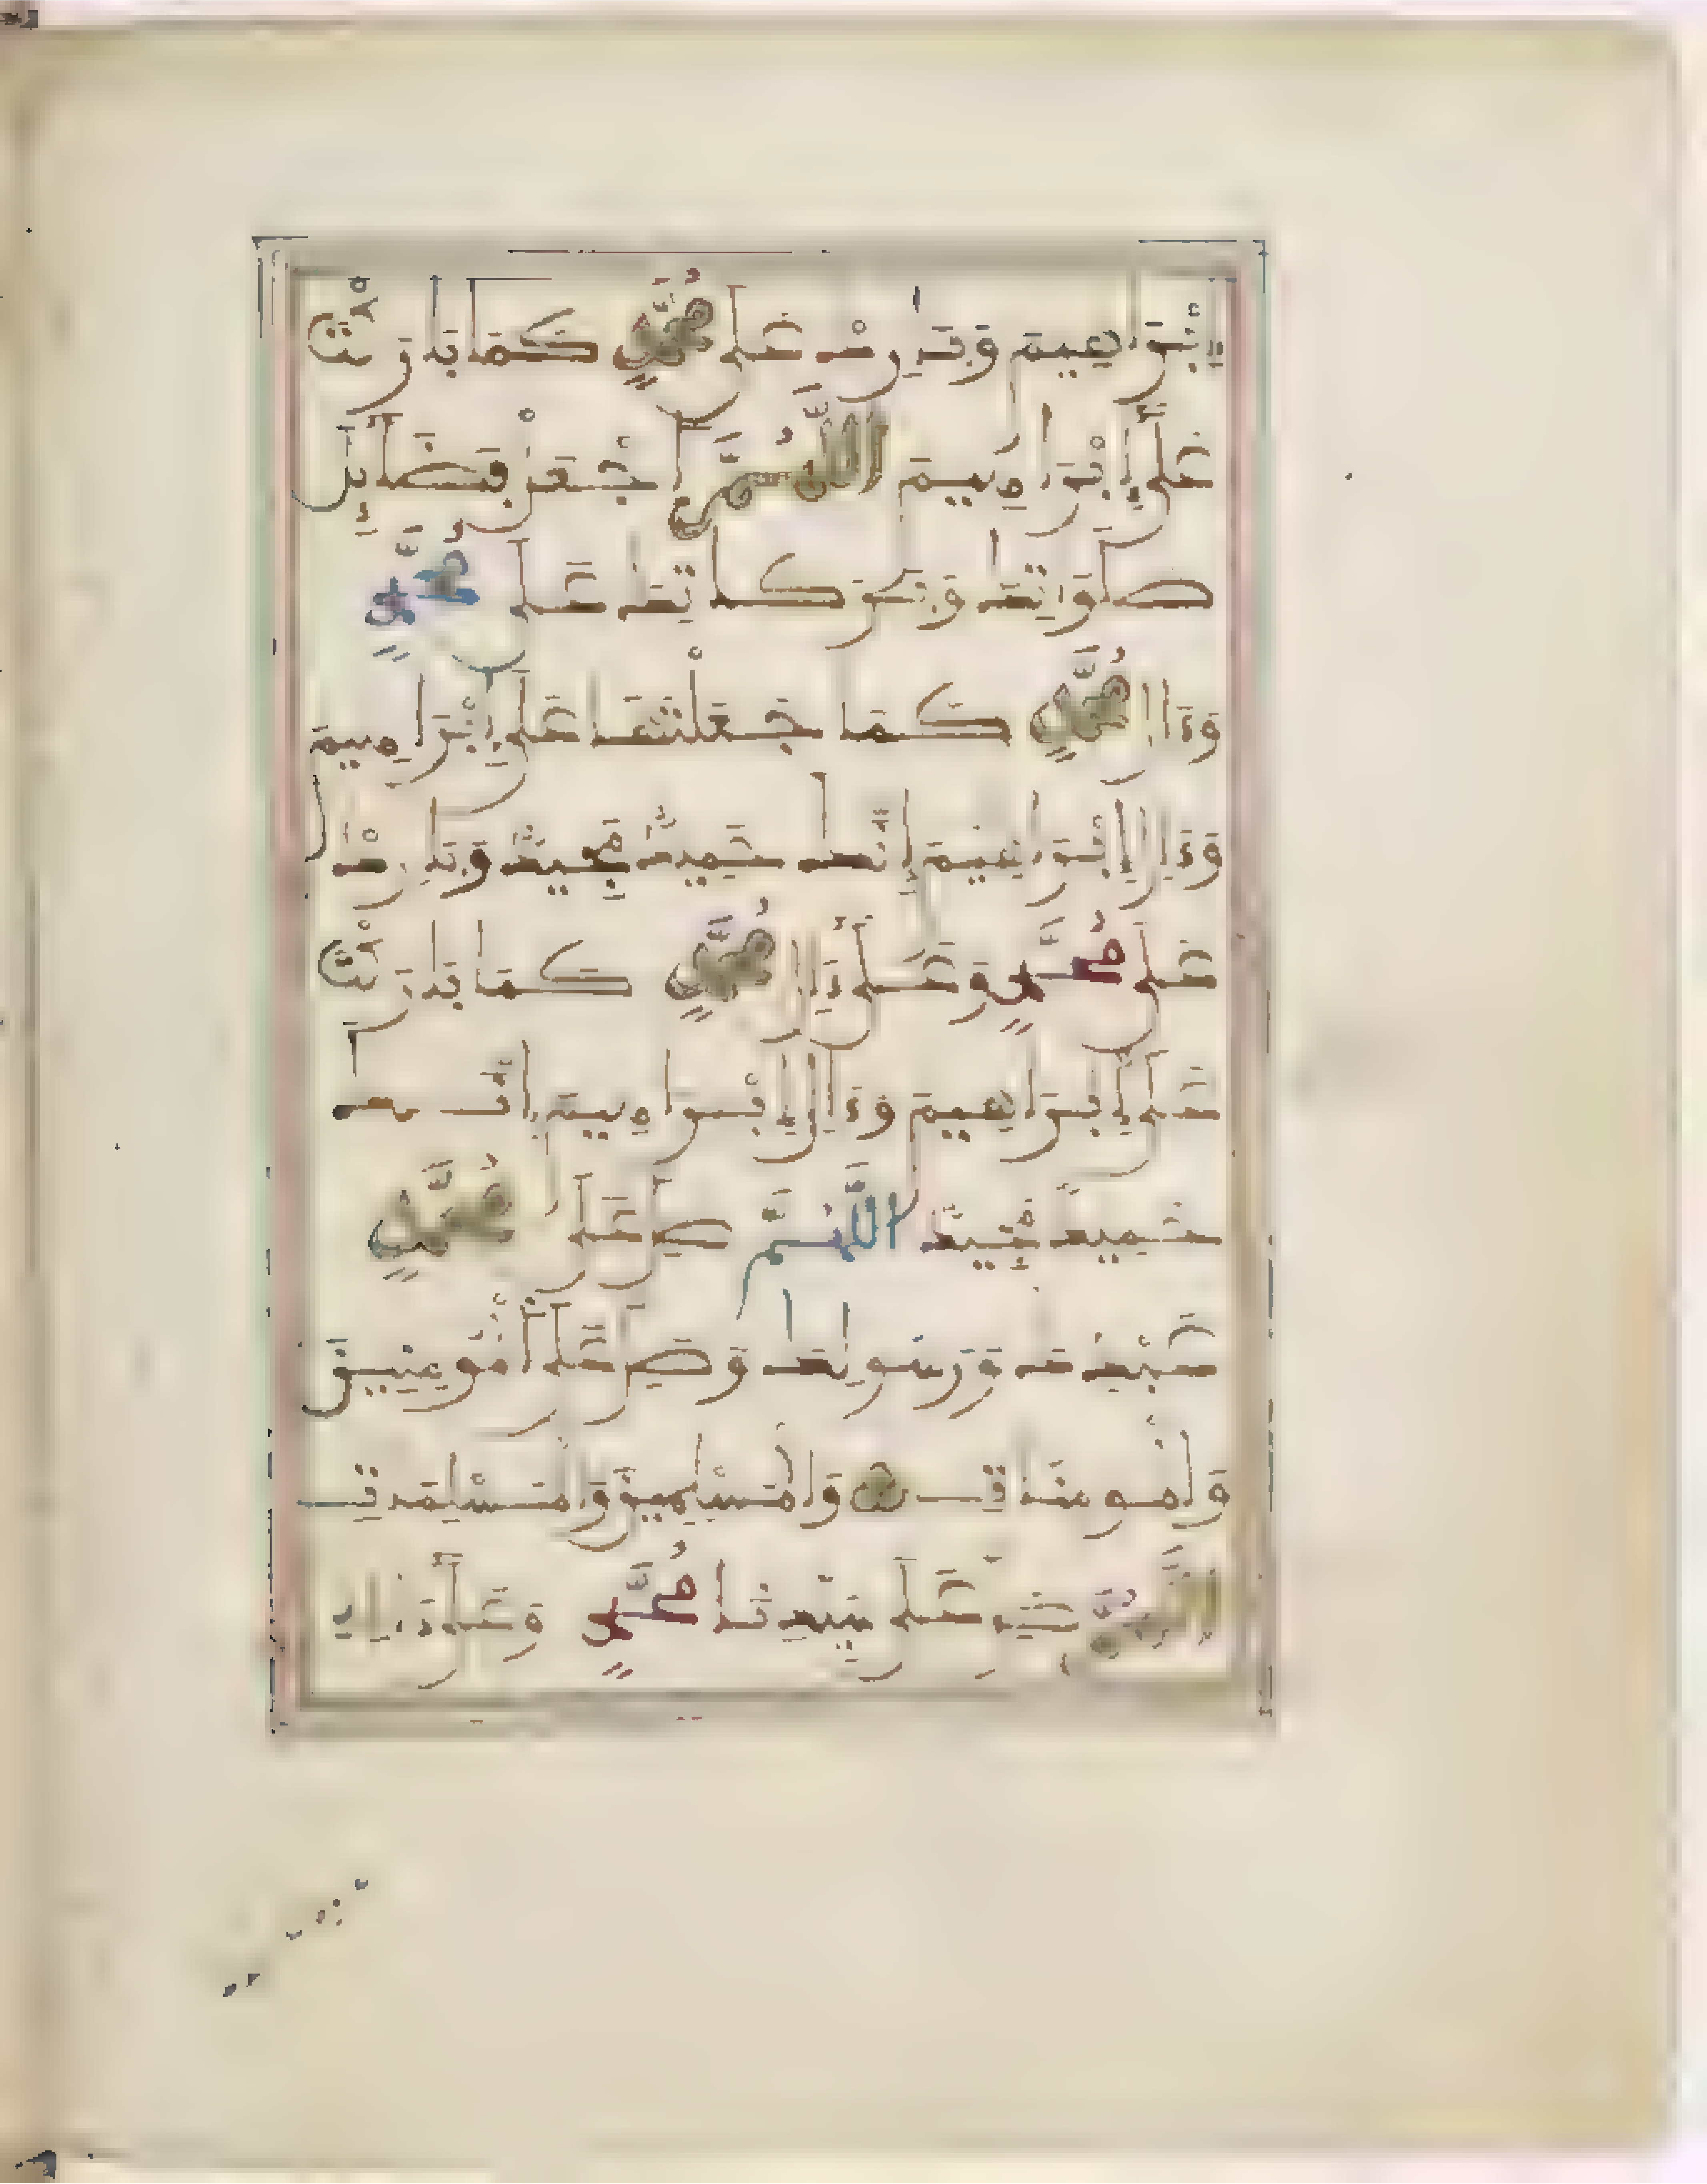 إِبْرَاهِيمَ وَبَارِكْ عَلَى مُحَمَّدٍ كَمَا بَارَكْتَ
عَلَى إِبْرَاهِيمَ اللَّهُمَّ اجْعَلْ فَضَائِلَ
صَلَوَاتِكَ وَبَرَكَاتِكَ عَلَى مُحَمَّدٍ
وَءَالِ مُحَمَّدٍ كَمَا جَعَلْتَهَا عَلَى إِبْرَاهِيمَ
وَءَالِ إِبْرَاهِيمَ إِنَّكَ حَمِيدٌ مَجِيدٌ وَبَارِكْ
عَلَى مُحَمَّدٍ وَعَلَى ءَالِ مُحَمَّدٍ كَمَا بَارَكْتَ
عَلَى إِبْرَاهِيمَ وَءَالِ إِبْرَاهِيمَ إِنَّكَ
حَمِيدٌ مَجِيدٌ اللَّهُمَّ صَلِّ عَلَى مُحَمَّدٍ
عَبْدِكَ وَرَسُولِكَ وَصَلِّ عَلَى الْمُومِنِينَ
وَالْمُومِنَاتِ وَالْمُسْلِمِينَ وَالْمُسْلِمَاتِ
اللَّهُمَّ صَلِّ عَلَى سَيِّدِنَا مُحَمَّدٍ وَعَلَى ءَالِهِ